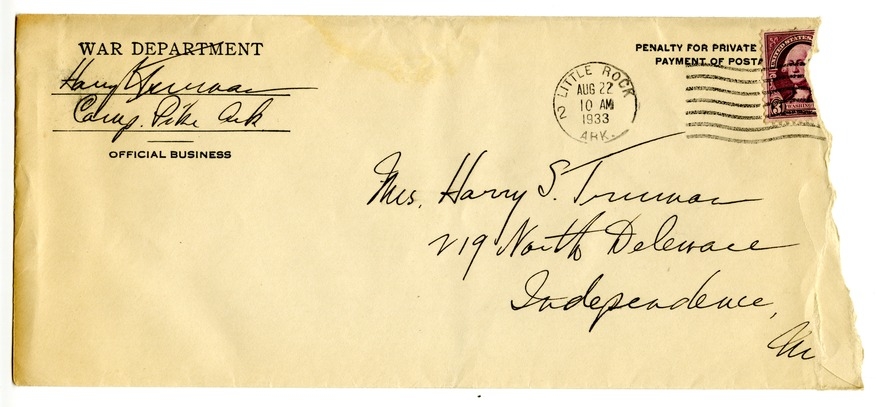 WAR DEPARTMENT
Harry S Truman
Camp. Pike Ark
OFFICIAL BUSINESS
PENALTY FOR PRIVATE
PAYMENT OF POSTA
UNITED STATES
3
WASHIN
2 LITTLE ROCK
AUG 22
10 AM
1933
ARK.
Mrs. Harry S. Truman
219 North Deleware
Independence,